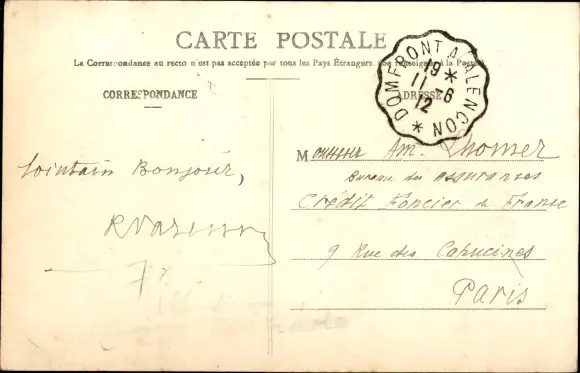 CARTE POSTALE
La Correspondance au recto n'est pas acceptée par tous les Pays Étrangers. (Se renseigner à la Poste)
CORRESPONDANCE
ADRESSE
DOMFRONT A ALENÇON *
19 *
11 - 6
12
Lointain Bonjour,
Monsieur Am. Lhomer
Bureau des assurances
Crédit Foncier de France
9 Rue des Capucines
Paris